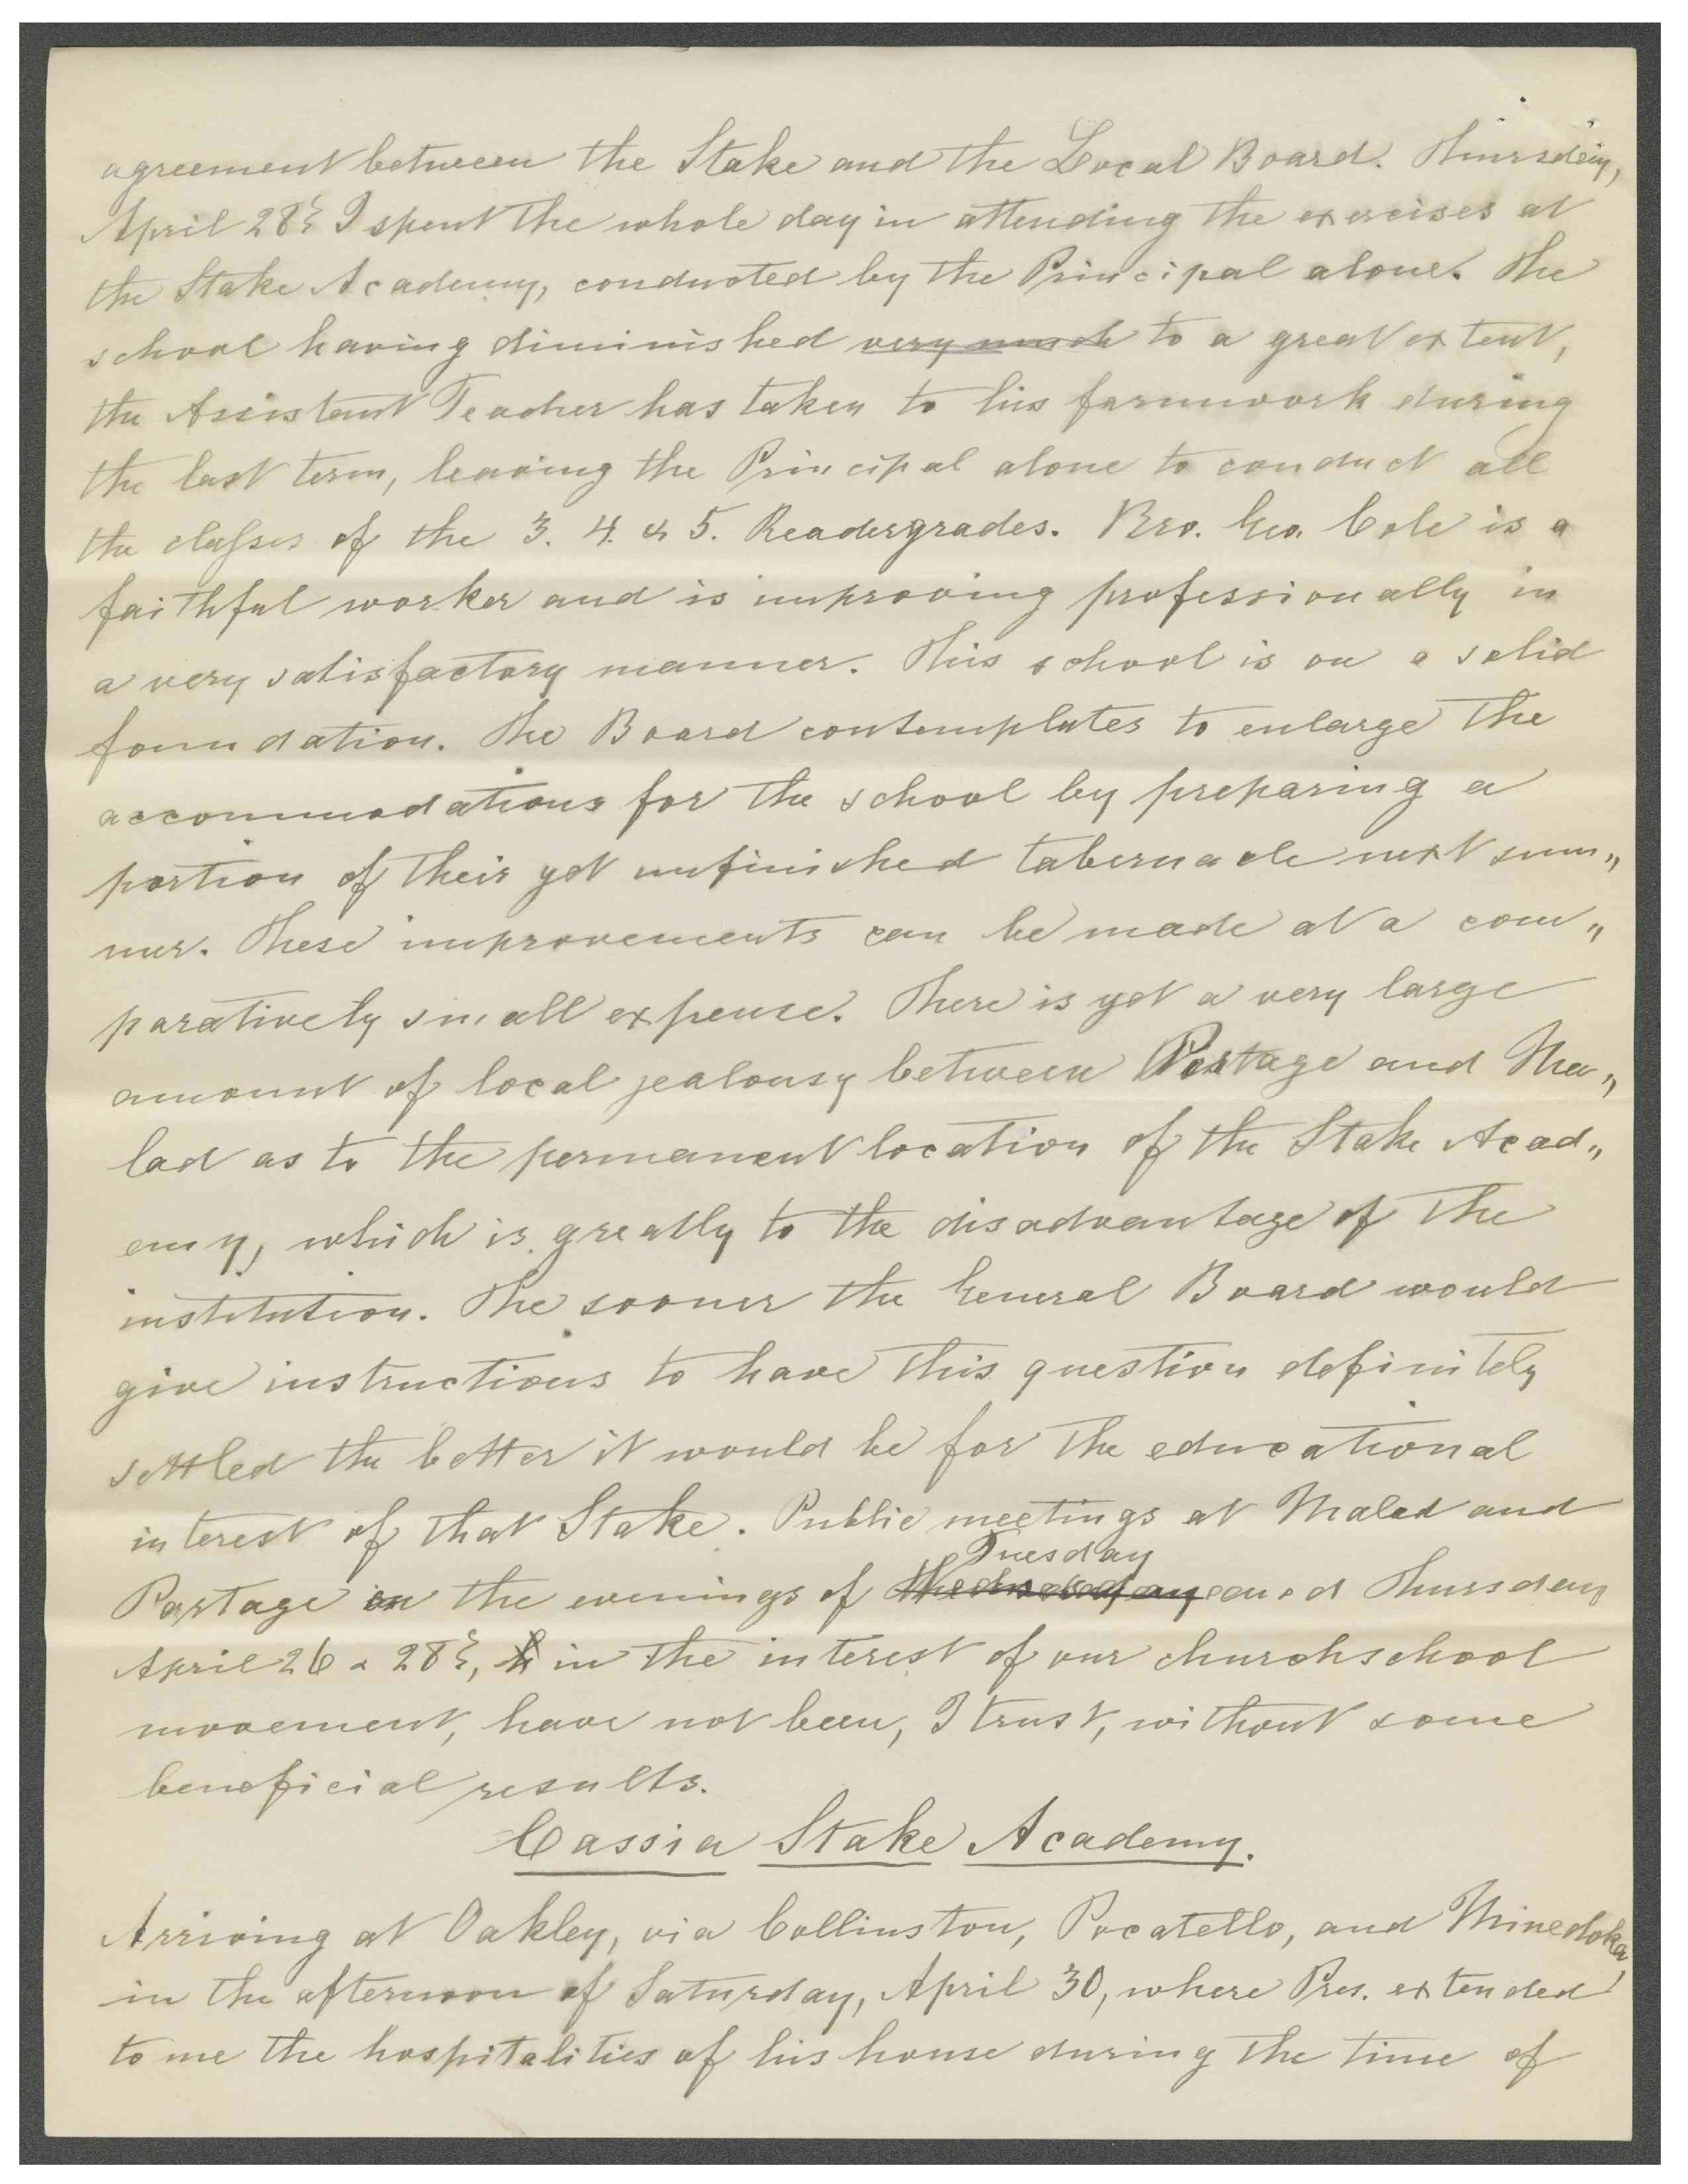 agreement between the Stake and the Local Board. Thursday,
April 28th I spent the whole day in attending the exercises at
the Stake Academy, conducted by the Principal alone. The
school having diminished very much to a great extent,
the Assistant Teacher has taken to his farmwork during
the last term, leaving the Principal alone to conduct all
the classes of the 3. 4. & 5. Readergrades. Bro. Geo. Cole is a
faithful worker and is improving professionally in
a very satisfactory manner. This school is on a solid
foundation. The Board contemplates to enlarge the
accommodations for the school by preparing a
portion of their yet unfinished tabernacle next sum„
mer. These improvements can be made at a com„
paratively small expense. There is yet a very large
amount of local jealousy between Portage and Ma„
lad as to the permanent location of the Stake Acad„
emy, which is greatly to the disadvantage of the
institution. The sooner the General Board would
give instructions to have this question definitely
settled the better it would be for the educational
interest of that Stake. Public meetings at Malad and
Tuesday
Portage on the evenings of Wednesday and Thursday
April 26 & 28th, in the interest of our churchschool
movement, have not been, I trust, without some
beneficial results.
Cassia Stake Academy.
Arriving at Oakley, via Collinston, Pocatello, and Minedoka,
in the afternoon of Saturday, April 30, where Pres. extended
to me the hospitalities of his house during the time of